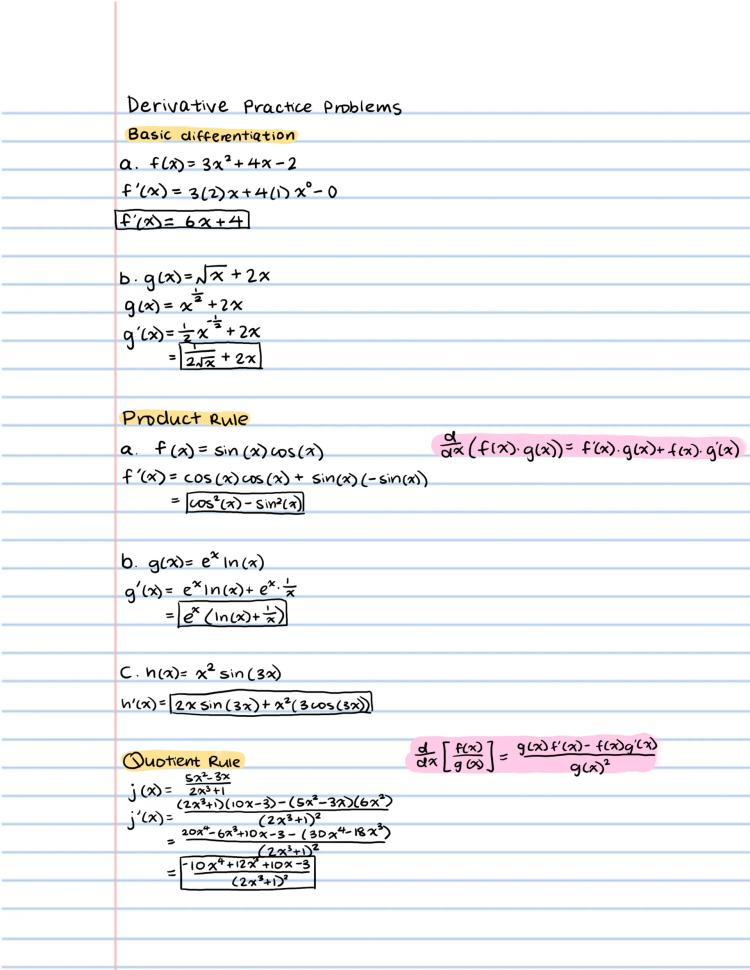 Derivative Practice Problems
Basic differentiation
a. f(x) = 3x² + 4x - 2
f'(x) = 3(2)x + 4(1)x⁰ - 0
f'(x) = 6x + 4
b. g(x) = √x + 2x
g(x) = x^(1/2) + 2x
g'(x) = 1/2 x^(-1/2) + 2x
= 1/(2√x) + 2x
Product Rule
a. f(x) = sin(x)cos(x)
d/dx (f(x)·g(x)) = f'(x)·g(x) + f(x)·g'(x)
f'(x) = cos(x)cos(x) + sin(x)(-sin(x))
= cos²(x) - sin²(x)
b. g(x) = eˣ ln(x)
g'(x) = eˣ ln(x) + eˣ · 1/x
= eˣ (ln(x) + 1/x)
C. h(x) = x² sin(3x)
h'(x) = 2x sin(3x) + x²(3cos(3x))
Quotient Rule
d/dx [f(x)/g(x)] = (g(x)f'(x) - f(x)g'(x))/g(x)²
j(x) = (5x² - 3x)/(2x³+1)
j'(x) = ((2x³+1)(10x-3) - (5x²-3x)(6x²))/(2x³+1)²
= (20x⁴ - 6x³ + 10x - 3 - (30x⁴ - 18x³))/(2x³+1)²
= (-10x⁴ + 12x³ + 10x - 3)/(2x³+1)²